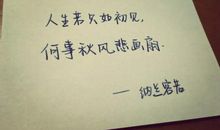 人生若只如初见，
何事秋风悲画扇.
——纳兰容若